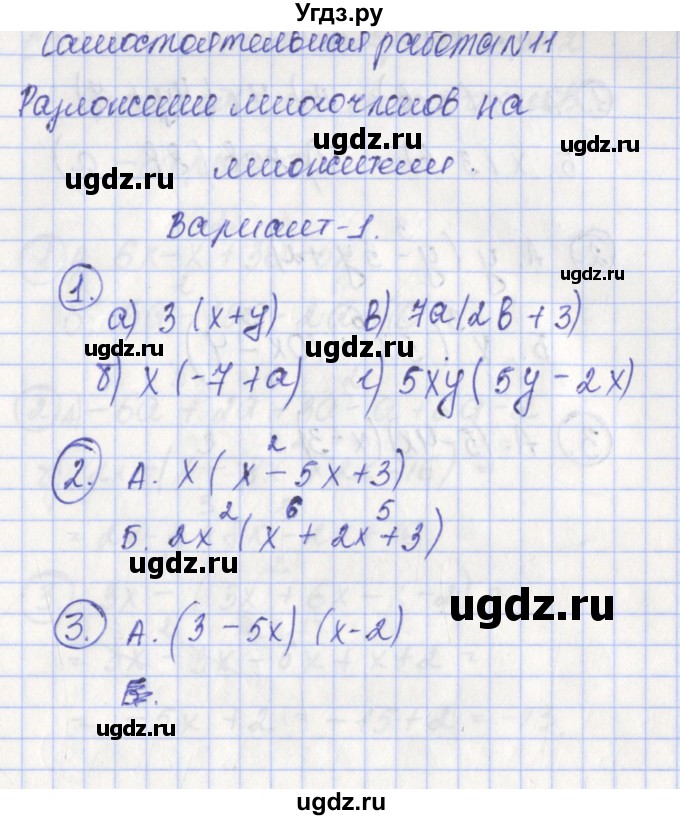 Угдз.ру
Самостоятельная работа №11
Разложение многочленов на
множители.
Вариант-1.
1. а) 3(x+y) в) 7a(2b+3)
б) x(-7+a) г) 5xy(5y-2x)
2. А. x(x²-5x+3)
Б. 2x²(x⁶+2x⁵+3)
3. А. (3-5x)(x-2)
ugdz.ru
ugdz.ru
ugdz.ru
ugdz.ru
ugdz.ru
ugdz.ru
ugdz.ru
ugdz.ru
ugdz.ru
ugdz.ru
ugdz.ru
ugdz.ru